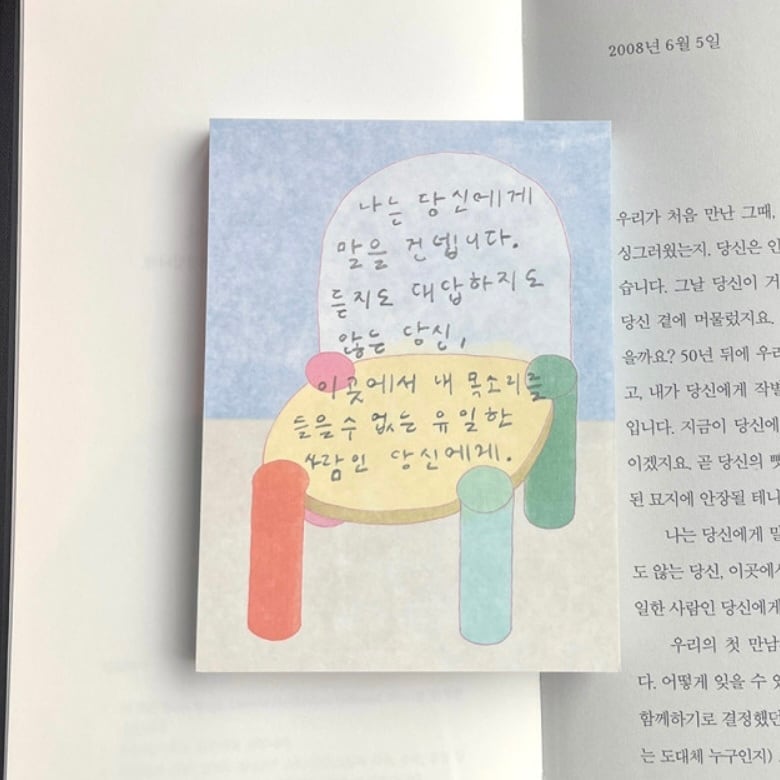 나는 당신에게
말을 건넵니다.
듣지도 대답하지도
않는 당신,
이곳에서 내 목소리를
들을수 없는 유일한
사람인 당신에게.
2008년 6월 5일
우리가 처음 만난 그때,
싱그러웠는지. 당신은
습니다. 그날 당신이
당신 곁에 머물렀지요.
을까요? 50년 뒤에
고, 내가 당신에게
입니다. 지금이
이겠지요. 곧 당신의
된 묘지에 안장될
나는 당신에게
도 않는 당신, 이곳에서
일한 사람인 당신에게
우리의 첫 만남
다. 어떻게 잊을 수
함께하기로
는 도대체 누구인지)